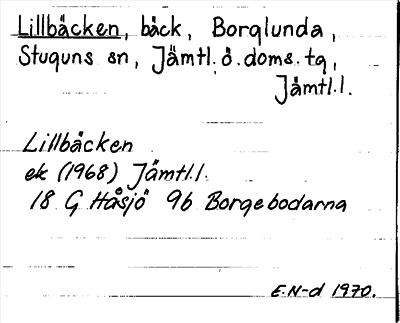 Lillbäcken, bäck, Borglunda,
Stuguns sn, Jämtl. ö. doms. tg,
Jämtl. l.
Lillbäcken
ek (1968) Jämtl. l.
18 G Håsjö 9b Borgebodarna
E.N-d 1970.